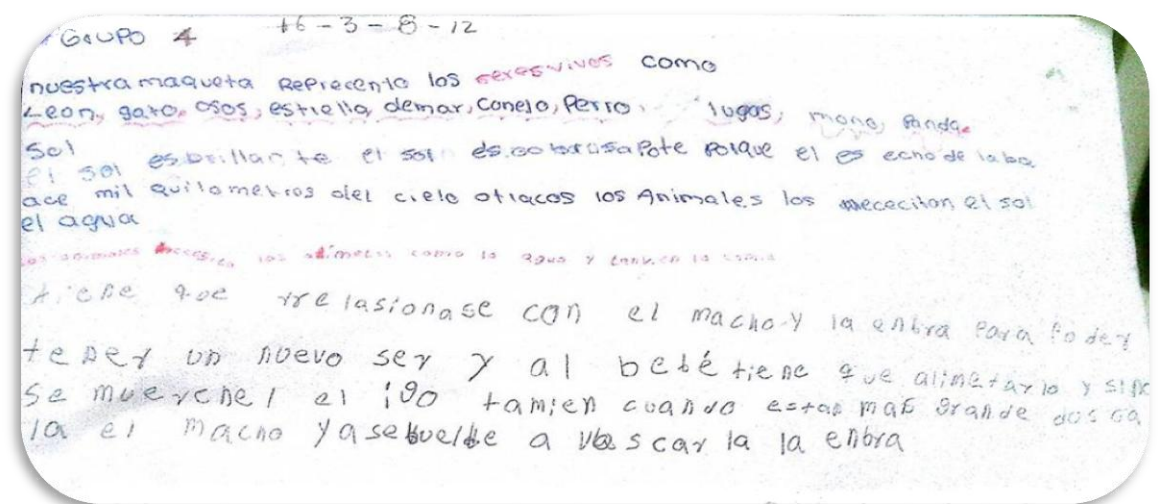 GRUPO 4 +6 - 3 - 8 - 12
nuestra maqueta Reprecento los seres vivos como
Leon, gato, osos, estrella demar, conejo, Perro, mono, Panda.
Sol
el sol es brillante el sol es Porque el es echo de laba
ace mil quilometros del cielo los Animales los mececitan el sol
el agua
los animales los como la agua y la
tiene que rrelasionase con el macho y la enbra Para Poder
tener un nuevo ser y al bebé tiene que alimetarlo y sino
se muerenel el ijo tamien cuando estan mas grande
la el macho yasebuelbe a buscar la la enbra